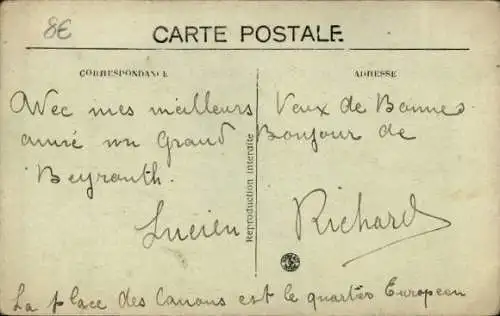 8€
CARTE POSTALE.
CORRESPONDANCE
ADRESSE
Avec mes meilleurs Veux de Bonnes
année un Grand Bonjour de
Beyrouth.
Lucien Richard
Reproduction interdite
La place des Canons est le quartier Européen